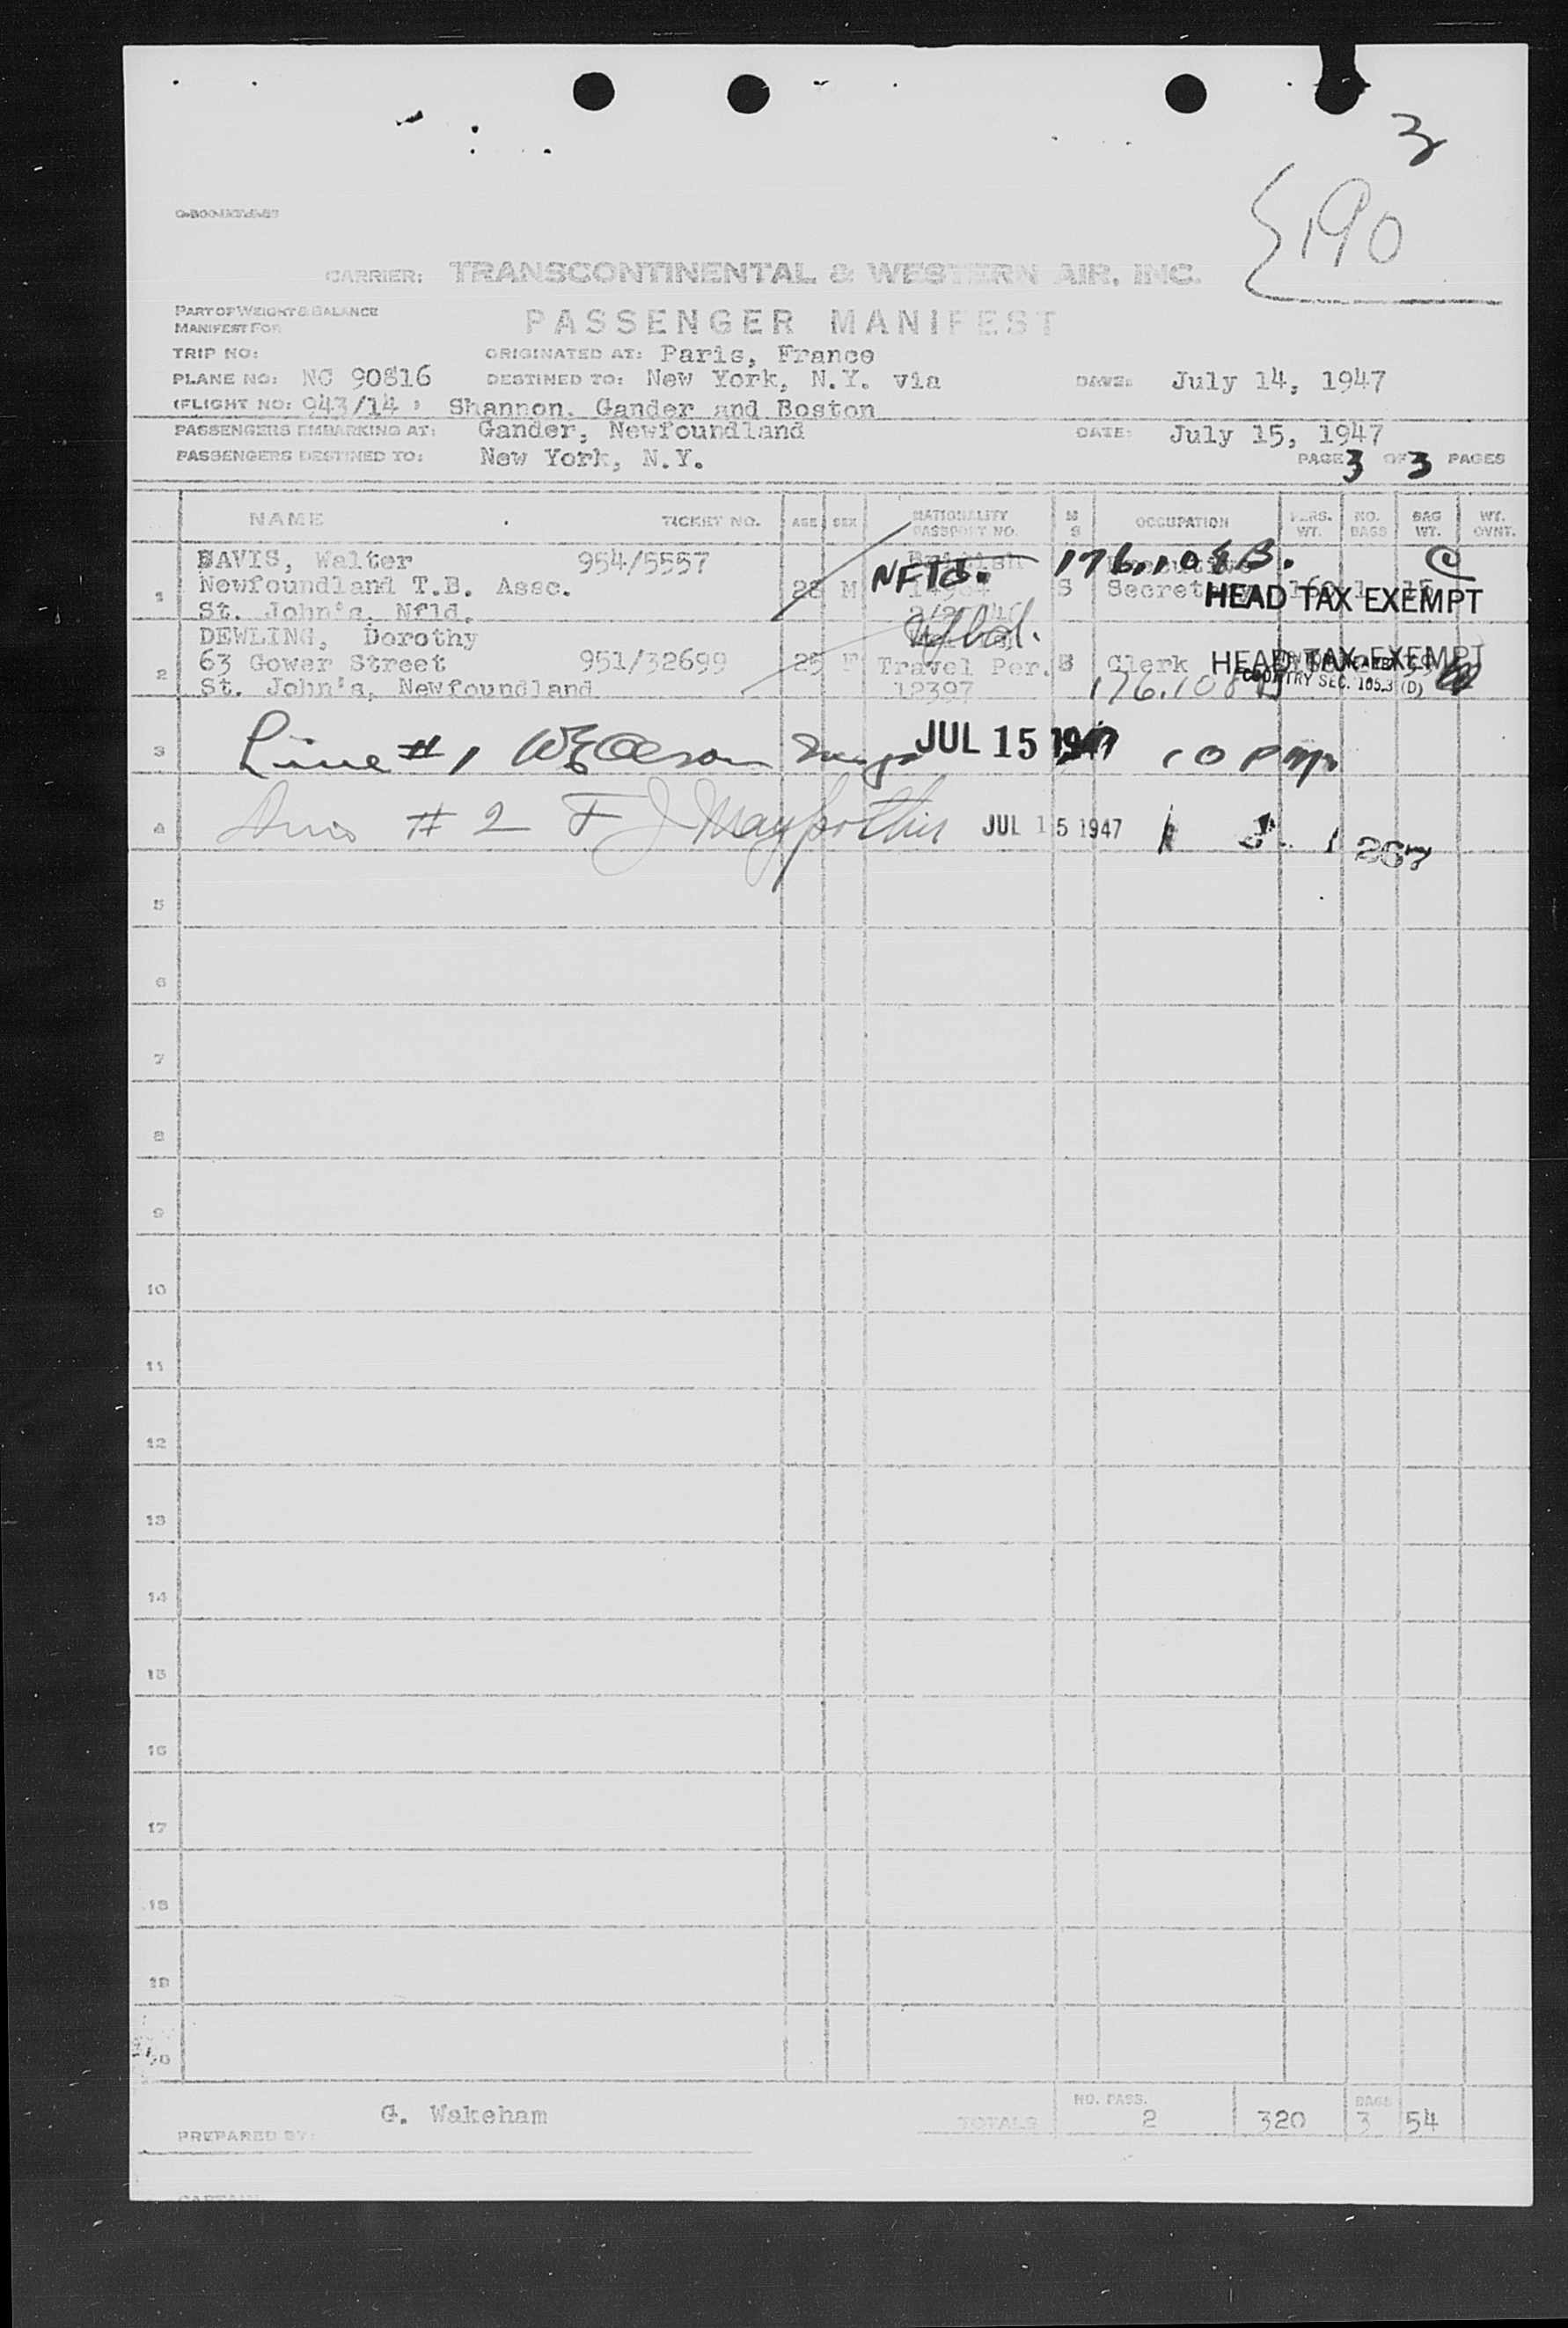 3
190
CARRIER: TRANSCONTINENTAL & WESTERN AIR, INC.
PART OF WEIGHT & BALANCE
MANIFEST FOR
PASSENGER MANIFEST
TRIP NO: ORIGINATED AT: Paris, France
PLANE NO: NC 90816 DESTINED TO: New York, N.Y. via DATE: July 14, 1947
(FLIGHT NO: 943/14 ) Shannon, Gander and Boston
PASSENGERS EMBARKING AT: Gander, Newfoundland DATE: July 15, 1947
PASSENGERS DESTINED TO: New York, N.Y. PAGE 3 OF 3 PAGES
NAME TICKET NO. AGE SEX NATIONALITY PASSPORT NO. M S OCCUPATION PERS. WT. NO. BAGS BAG WT. WT. OVNT.
DAVIS, Walter 954/5557 British NFld. 176.10 & B. C
1 Newfoundland T.B. Assc. 28 M S Secretary HEAD TAX EXEMPT
St. John's, Nfld.
DEWLING, Dorothy Nfld.
2 63 Gower Street 951/32699 25 F Travel Per. S Clerk HEAD TAX EXEMPT
St. John's, Newfoundland 12397 176.10 COUNTRY SEC. 105.3 (D)
3 Line # 1 JUL 15 1947 10 PM
4 # 2 F J JUL 15 1947 267
5
6
7
8
9
10
11
12
13
14
15
16
17
18
19
20
G. Wakeham NO. PASS. BAGS
PREPARED BY: TOTALS 2 320 3 54
CAPTAIN